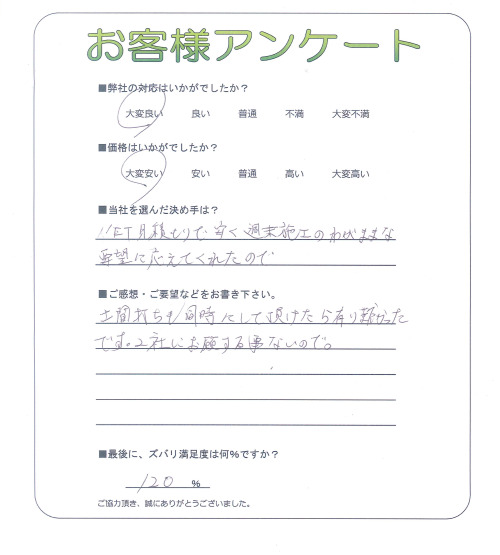 お客様アンケート
■弊社の対応はいかがでしたか？
大変良い 良い 普通 不満 大変不満
■価格はいかがでしたか？
大変安い 安い 普通 高い 大変高い
■当社を選んだ決め手は？
見積もりで安く週末施工のわがままな
要望に応えてくれたので
■ご感想・ご要望などをお書き下さい。
土間打ちも同時にして頂けたら有り難かった
です。2社にお願する事ないので。
■最後に、ズバリ満足度は何%ですか？
120 %
ご協力頂き、誠にありがとうございました。